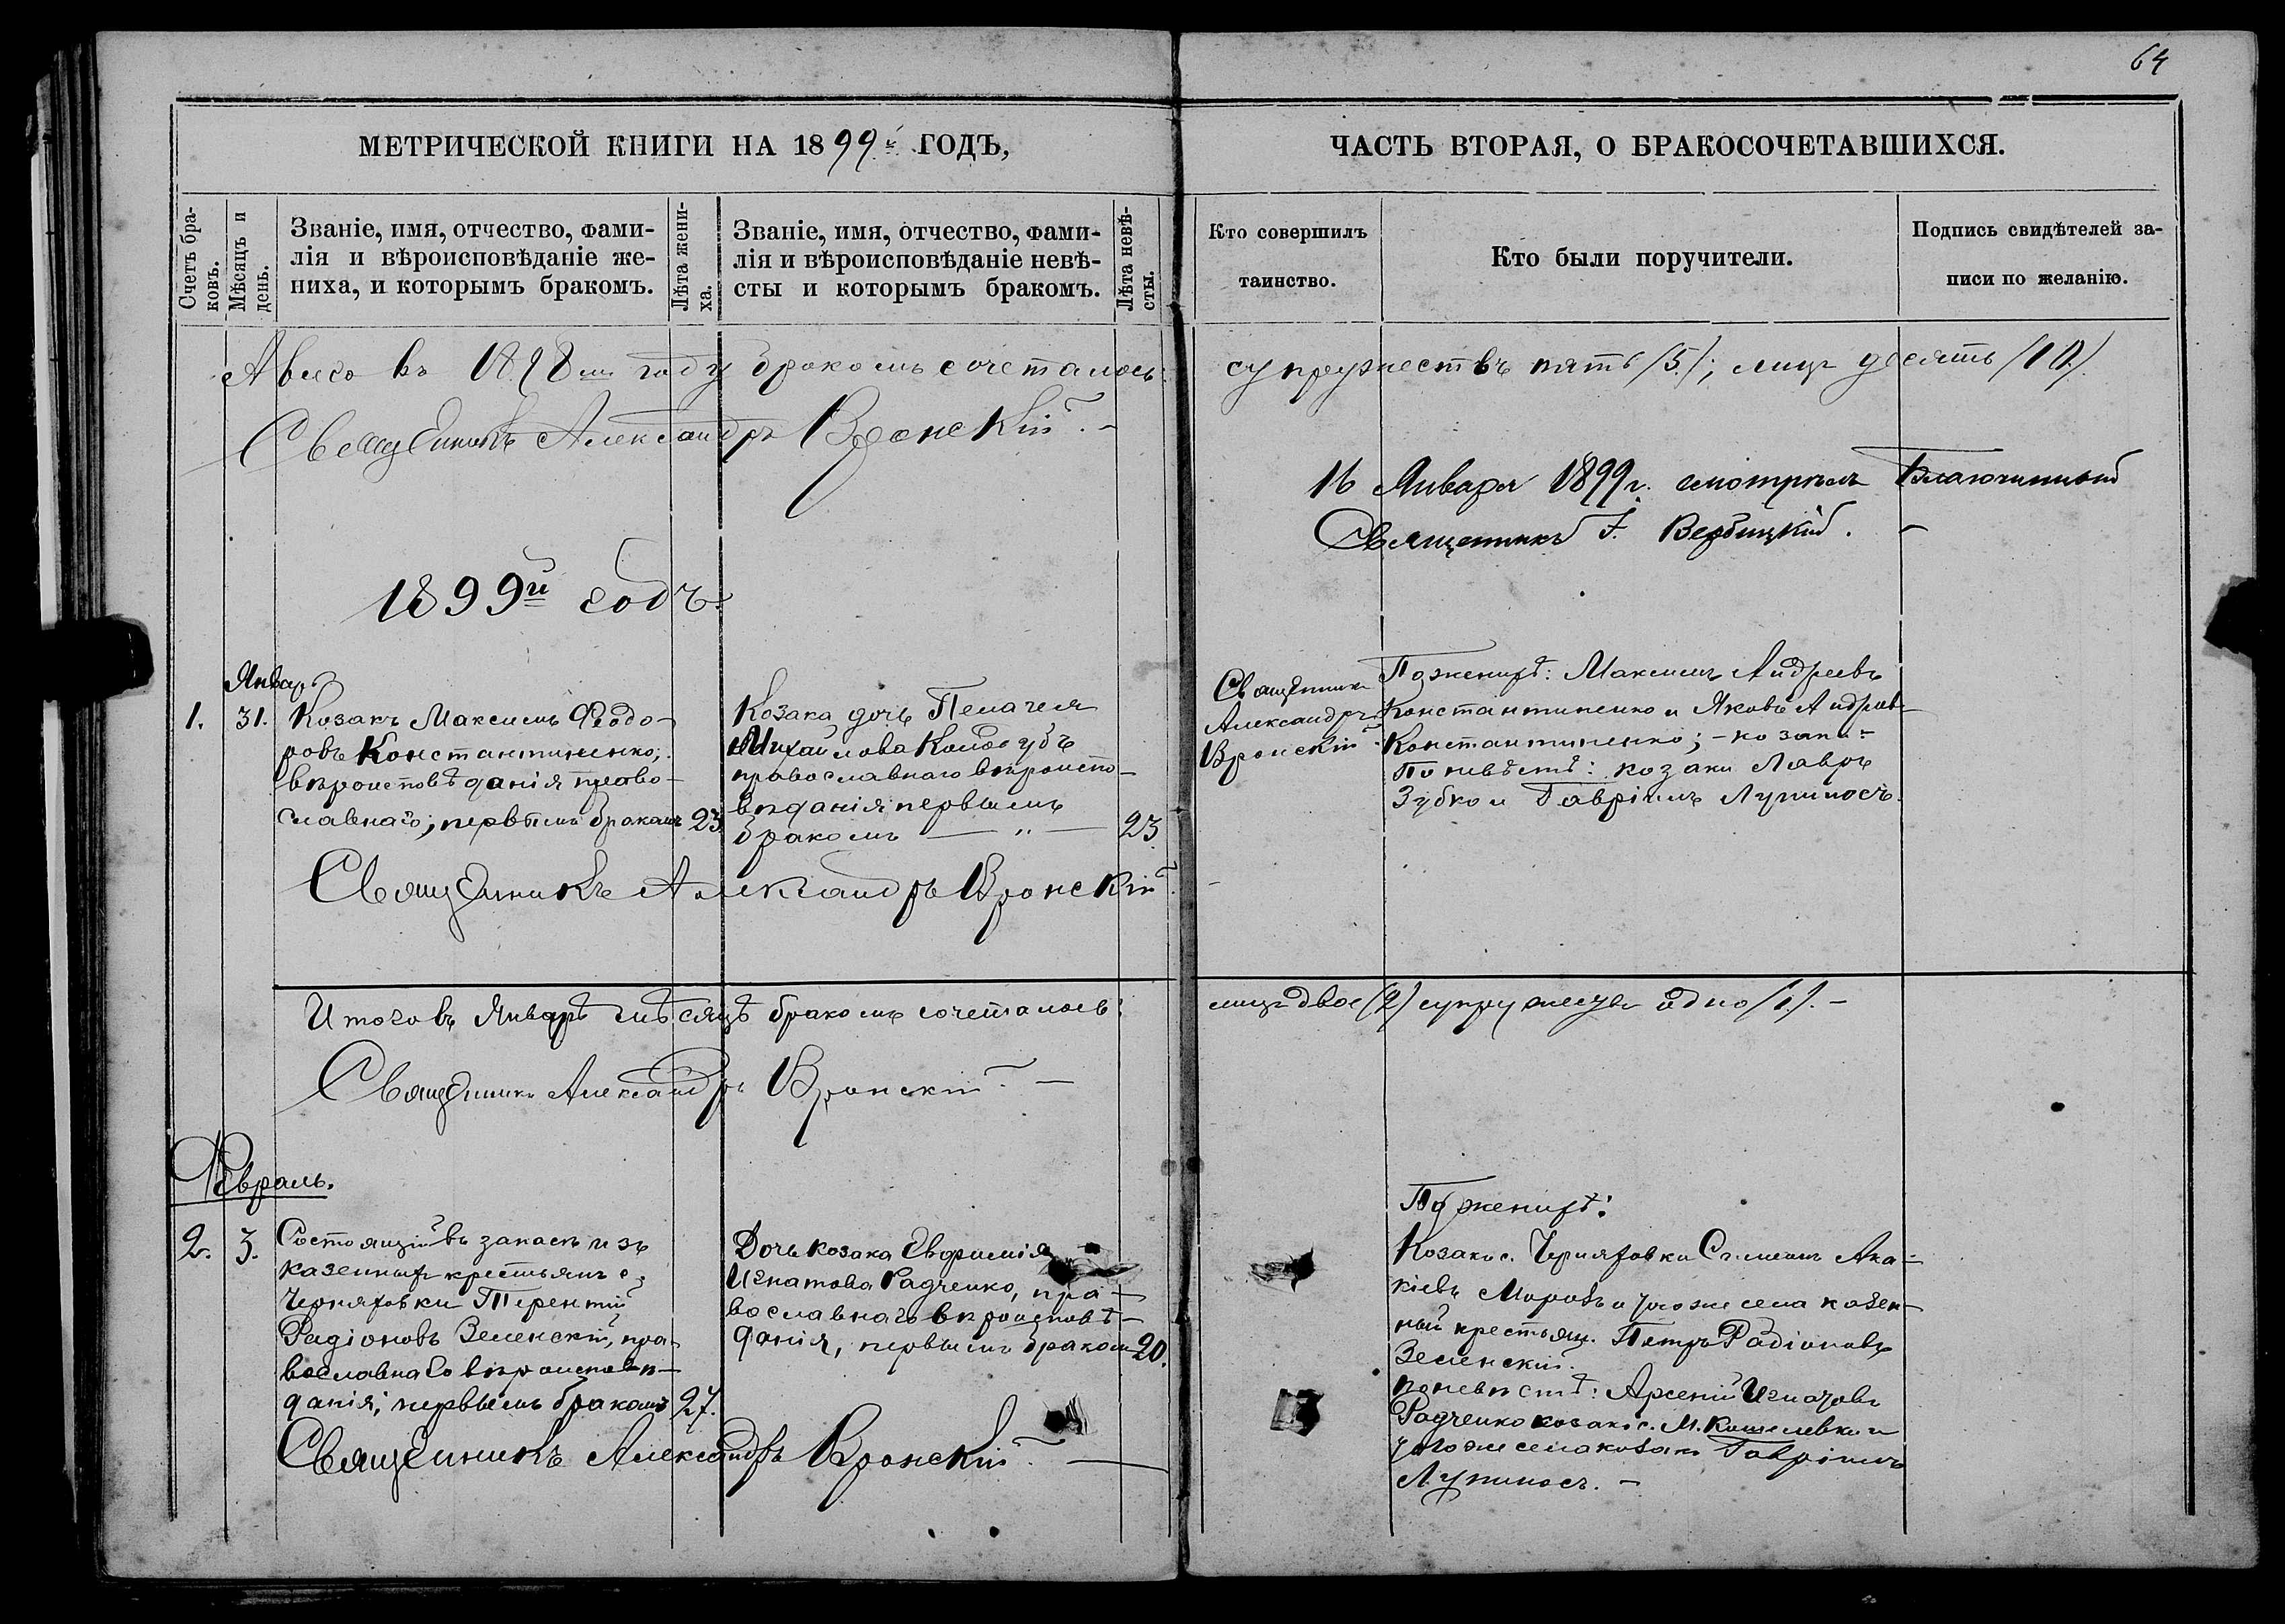 64
МЕТРИЧЕСКОЙ КНИГИ НА 1899й ГОДЪ,
ЧАСТЬ ВТОРАЯ, О БРАКОСОЧЕТАВШИХСЯ.
Счетъ бра-
ковъ.
Мѣсяцъ и
день.
Званіе, имя, отчество, фами-
лія и вѣроисповѣданіе же-
ниха, и которымъ бракомъ.
Лѣта жени-
ха.
Званіе, имя, отчество, фами-
лія и вѣроисповѣданіе невѣ-
сты и которымъ бракомъ.
Лѣта невѣ-
сты.
Кто совершилъ
таинство.
Кто были поручители.
Подпись свидѣтелей за-
писи по желанію.
А всего въ 1898мъ году бракомъ сочеталось: супружествъ пять /5/; лицъ десять /10/.
Священникъ Александръ Вронскій. -
16 Января 1899 г. смотрѣлъ Благочинный
Священникъ І. Вербицкій. -
1899й годъ.
Январь
1. 31.
Козакъ Максимъ Ѳеодо-
ровъ Константиненко,
вѣроисповѣданія право-
славнаго; первымъ бракомъ 23
Козака дочь Пелагея
Михайлова
православнаго вѣроиспо-
вѣданія первымъ
бракомъ — „ — 23.
Священникъ
Александръ
Вронскій
По женихѣ: Максимъ Андреевъ
Константиненко и Яковъ Андреев-
Константиненко; - козаки -
По невѣстѣ: козаки Лавръ
Зубко и Гавріилъ Лупиносъ.
Священникъ Александръ Вронскій.
Итого въ Январѣ мѣсяцѣ бракомъ сочеталось: лицъ двое (2) супружеству одно /1/. -
Священникъ Александръ Вронскій. -
Февраль.
2. 3.
Состоящій въ запасѣ изъ
казенныхъ крестьянъ с.
Черняховки Терентій
Радіоновъ Зеленскій, пра-
вославнаго вѣроисповѣ-
данія; первымъ бракомъ 27.
Дочь козака Евфимія
Игнатова Радченко, пра-
вославнаго вѣроисповѣ-
данія, первымъ бракомъ 20.
По женихѣ:
Козакъ с. Черняховки Симеонъ Ака-
кіевъ Морозъ и того же села казен-
ный крестьян. Петръ Радіоновъ
Зеленскій.
по невѣстѣ: Арсеній Игнатовъ
Радченко козакъ с. М. Кошелевки и
того же села козакъ Гавріилъ
Лупиносъ. -
Священникъ Александръ Вронскій. —